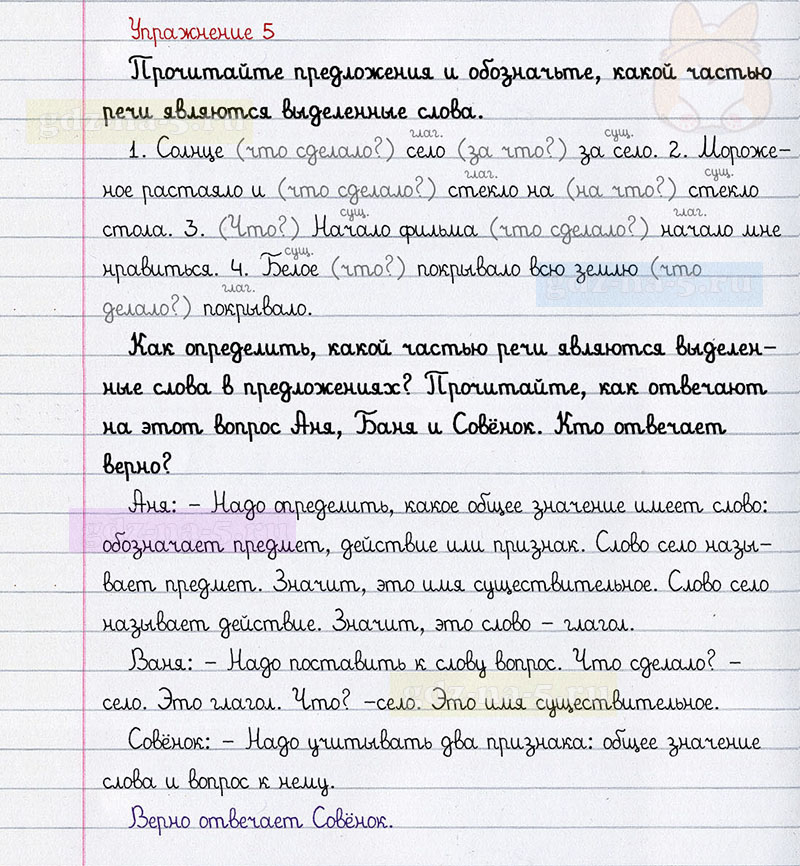 Упражнение 5
Прочитайте предложения и обозначьте, какой частью
речи являются выделенные слова.
глаг. сущ.
1. Солнце (что сделало?) село (за что?) за село. 2. Мороже-
глаг. сущ.
ное растаяло и (что сделало?) стекло на (на что?) стекло
сущ. глаг.
стола. 3. (Что?) Начало фильма (что сделало?) начало мне
сущ.
нравиться. 4. Белое (что?) покрывало всю землю (что
глаг.
делало?) покрывало.
gdz-na-5.ru
Как определить, какой частью речи являются выделен-
ные слова в предложениях? Прочитайте, как отвечают
на этот вопрос Аня, Ваня и Совёнок. Кто отвечает
верно?
Аня: – Надо определить, какое общее значение имеет слово:
gdz-na-5.ru
обозначает предмет, действие или признак. Слово село назы-
вает предмет. Значит, это имя существительное. Слово село
называет действие. Значит, это слово – глагол.
Ваня: – Надо поставить к слову вопрос. Что сделало? –
село. Это глагол. Что? –село. Это имя существительное.
gdz-na-5.ru
Совёнок: – Надо учитывать два признака: общее значение
слова и вопрос к нему.
Верно отвечает Совёнок.
gdz-na-5.ru